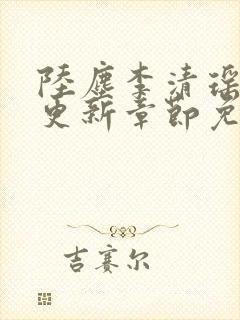 陆尘李清瑶
更新章节免
吉赛尔